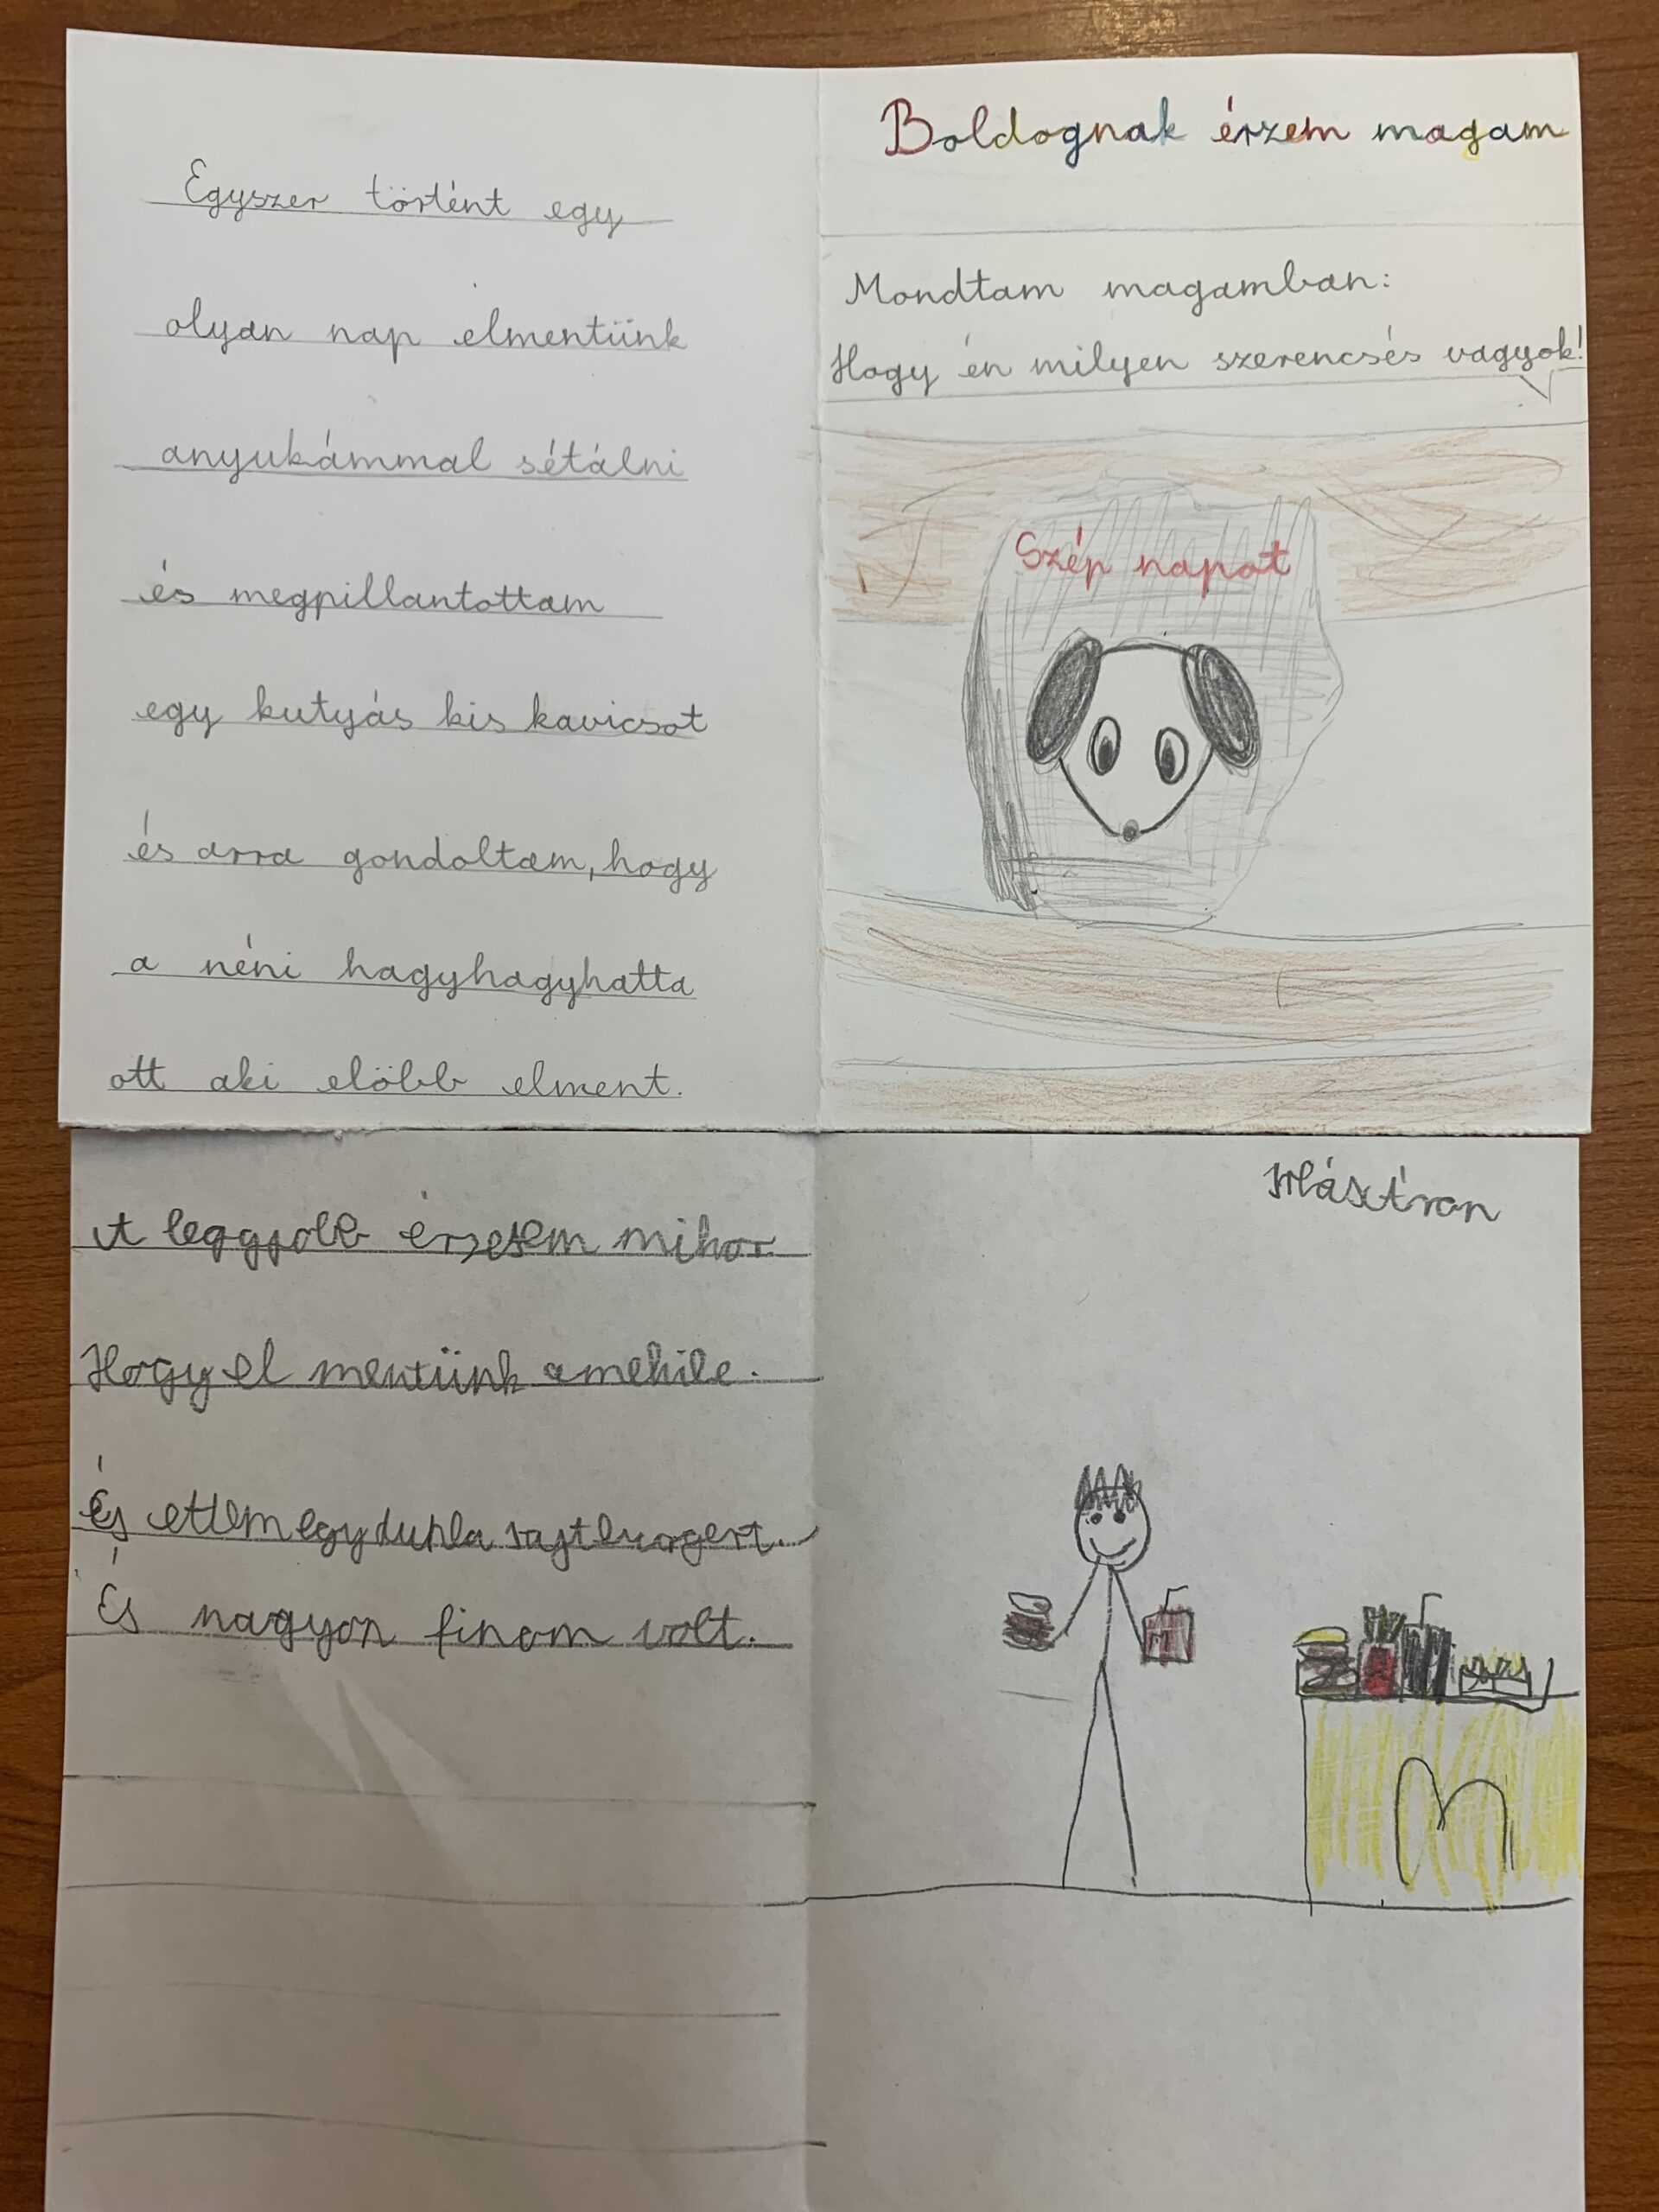 Egyszer történt egy
olyan nap elmentünk
anyukámmal sétálni
és megpillantottam
egy kutyás kis kavicsot
és arra gondoltam, hogy
a néni hagyhagyhatta
ott aki elöbb elment.
Boldognak érzem magam
Mondtam magamban:
Hogy én milyen szerencsés vagyok!
Szép napot
A leggjobb érzesem mikor
Hogy el mentünk a mekibe.
És ettem egy dupla sajtburgert.
És nagyon finom volt.
M
M